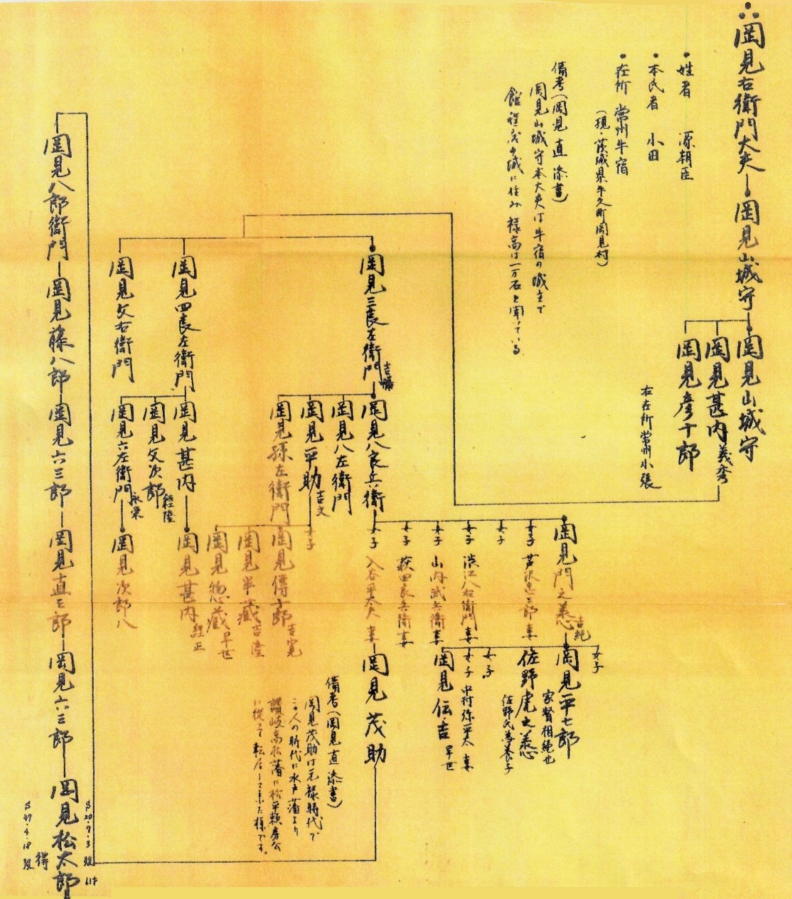 岡見右衛門大夫
岡見山城守
岡見山城守
岡見甚内 義秀
岡見彦十郎
右在所常州小張
・姓者 源朝臣
・本氏者 小田
・在所 常州牛宿
(現・茨城県牛久町岡見村)
備考(岡見直添書)
岡見山城守本大夫は牛宿の城主で
城に住み 禄高は一万石と聞いている
岡見三良左衛門
岡見四良左衛門
岡見又右衛門
岡見八良兵衛
岡見八左衛門
岡見平助 吉文
岡見孫左衛門
岡見甚内
岡見又次郎
岡見六左衛門
女子
岡見傳十郎 吉寛
岡見半蔵 吉隆
岡見惣蔵 早世
岡見甚内
岡見次郎八
岡見門之丞 吉純
女子
女子
女子 渋江八右衛門妻
女子 山内武兵衛妻
女子 荻田良兵衛妻
女子
女子
岡見平七郎
家督相続也
佐野虎之丞
佐野氏為養子
女子
女子 中村弥平太妻
岡見伝吉 早世
岡見茂助
備考(岡見直添書)
岡見茂助は元禄時代で
この人の時代に水戸藩より
讃岐高松藩に松平頼房公
に従って転居して来た様です。
岡見八郎衛門
岡見藤八郎
岡見六三郎
岡見直三郎
岡見六三郎
岡見松太郎